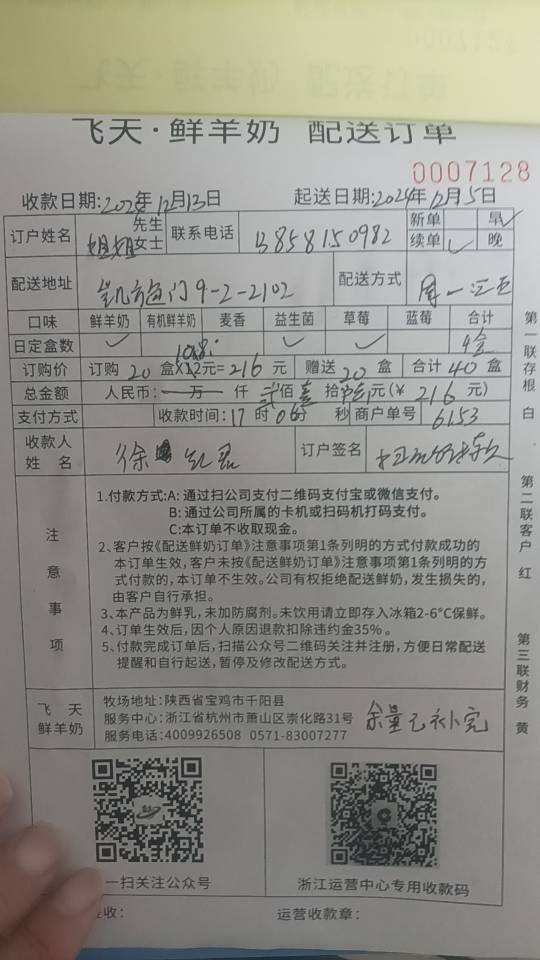 飞天·鲜羊奶 配送订单
0007128
收款日期:2024年12月13日 起送日期:2024年12月5日
订户姓名 姐姐 先生 女士 联系电话 13858150982 新单 早✓
续单 ✓ 晚
配送地址 9-2-2102 配送方式 周一至五
口味 鲜羊奶 有机鲜羊奶 麦香 益生菌 草莓 蓝莓 合计
日定盒数 ✓ ✓ ✓ 4盒
订购价 订购 20 盒×12元=216 元 赠送 20 盒 合计 40 盒
10.8
总金额 人民币: 万 仟 贰佰 壹 拾 陆 元(￥ 216 元)
支付方式 收款时间:17 时 06分 秒 商户单号 6153
收款人 姓 名 徐 订户签名
注意事项
1.付款方式:A: 通过扫公司支付二维码支付宝或微信支付。
B: 通过公司所属的卡机或扫码机打码支付。
C:本订单不收取现金。
2、客户按《配送鲜奶订单》注意事项第1条列明的方式付款成功的
本订单生效，客户未按《配送鲜奶订单》注意事项第1条列明的方
式付款的，本订单不生效。公司有权拒绝配送鲜奶，发生损失的，
由客户自行承担。
3、本产品为鲜乳，未加防腐剂。未饮用请立即存入冰箱2-6°C保鲜。
4、订单生效后，因个人原因退款扣除违约金35%。
5、付款完成订单后，扫描公众号二维码关注并注册，方便日常配送
提醒和自行起送，暂停及修改配送方式。
飞 天
鲜羊奶
牧场地址：陕西省宝鸡市千阳县
服务中心：浙江省杭州市萧山区崇化路31号
服务电话：4009926508 0571-83007277
余量已补完
一扫关注公众号 浙江运营中心专用收款码
收： 运营收款章：
第一联存根 白
第二联客户 红
第三联财务 黄